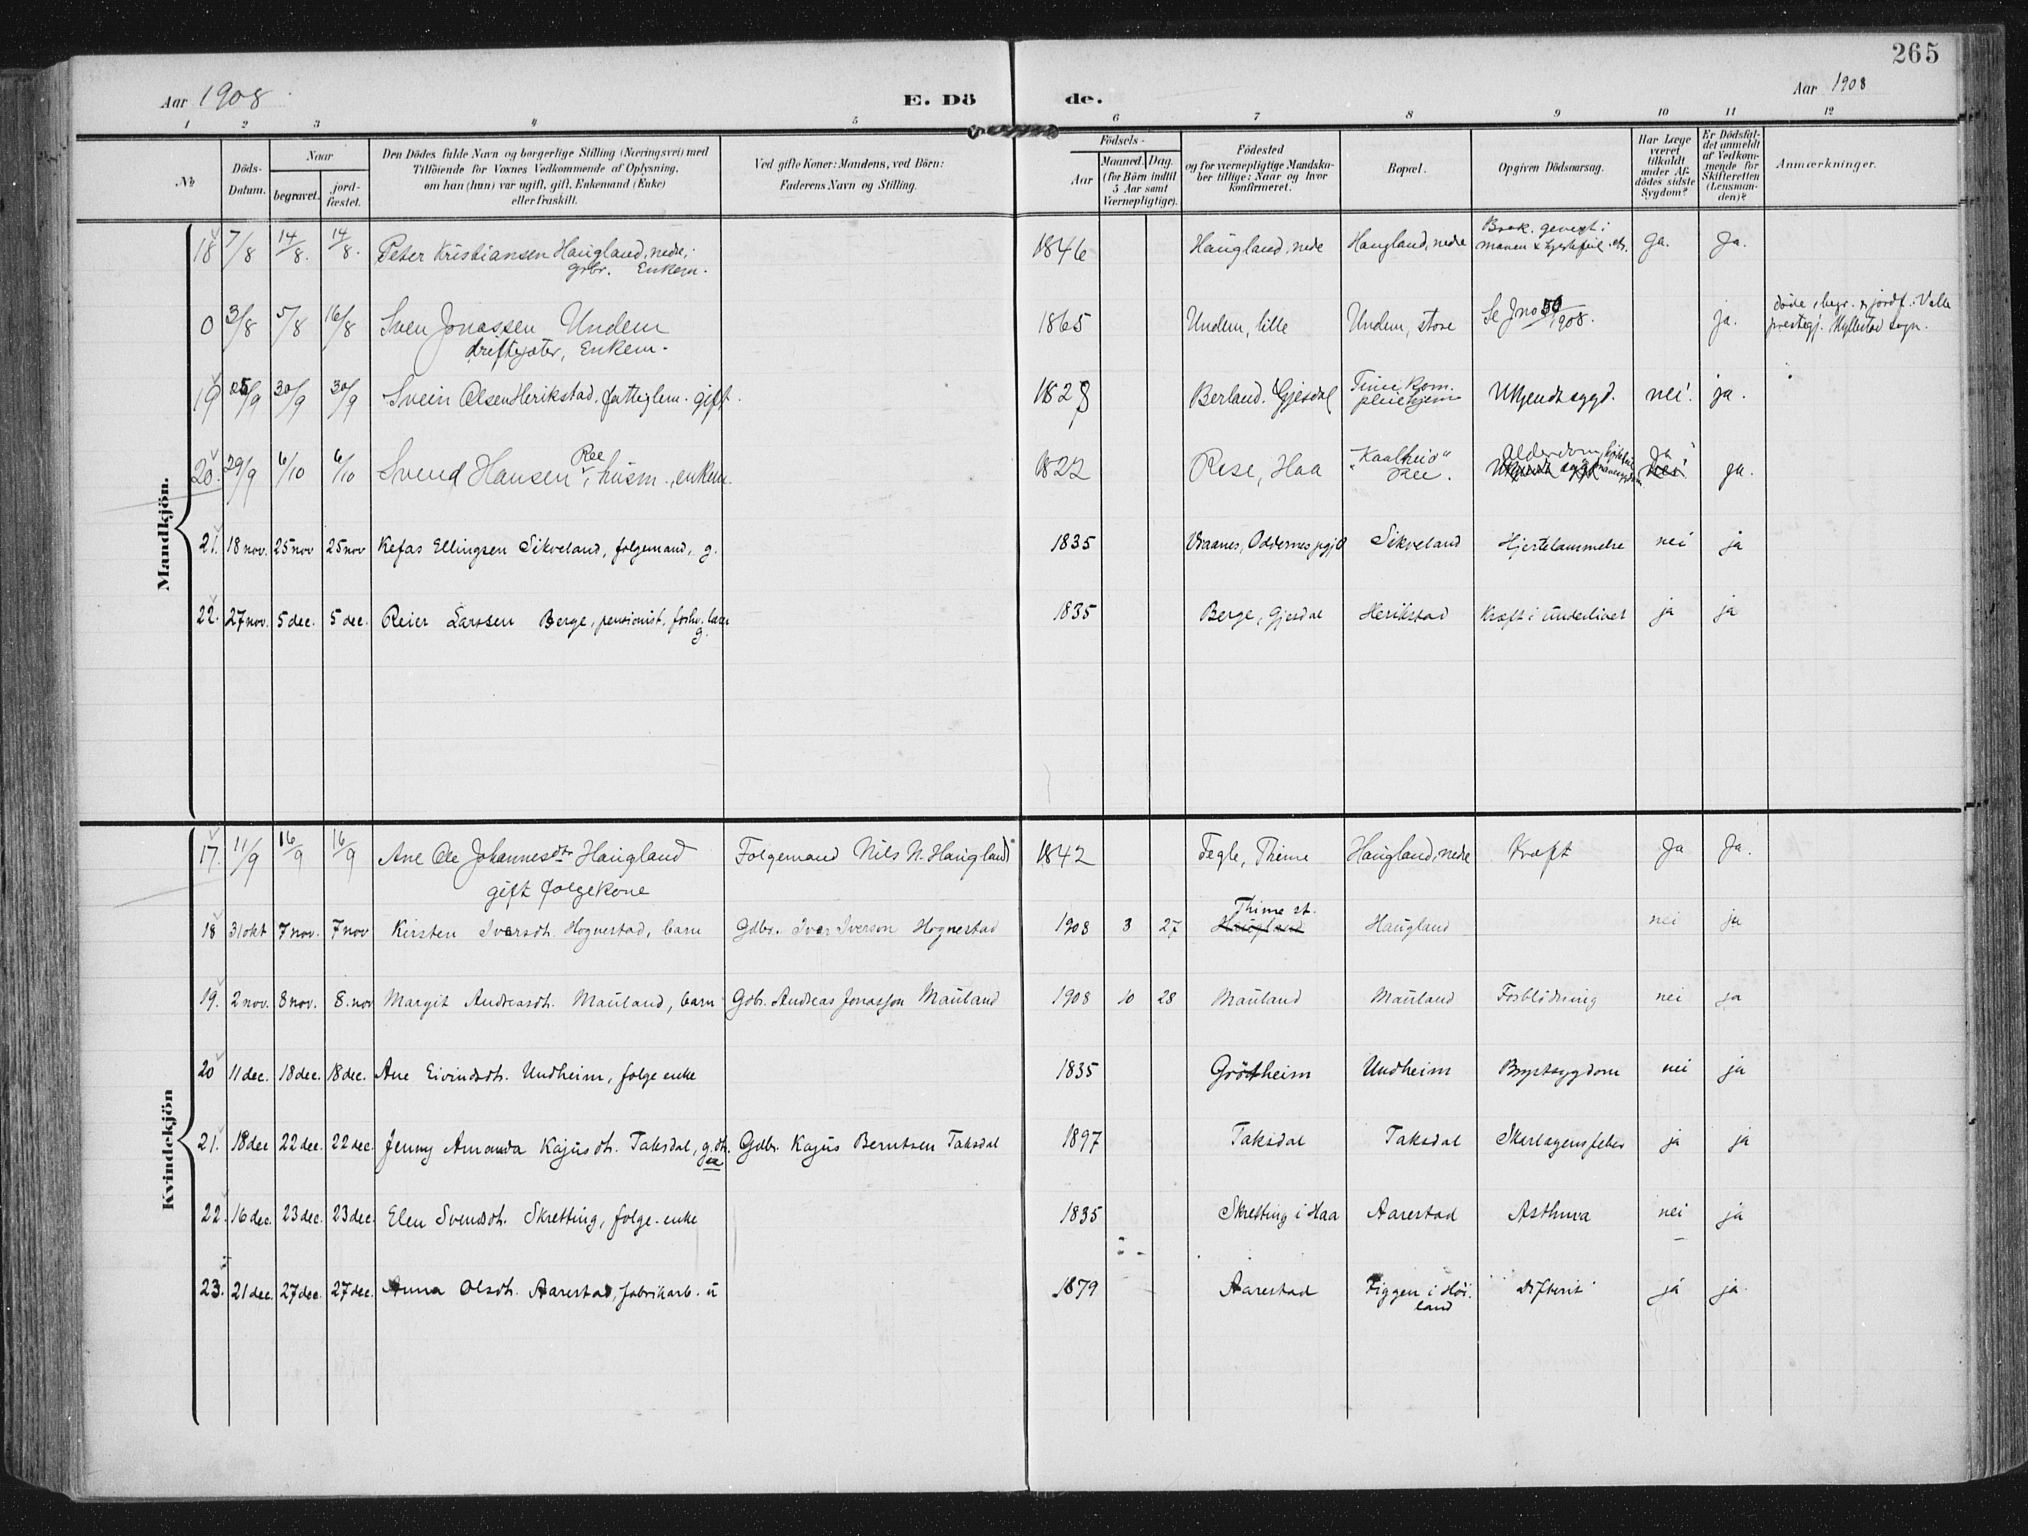 265
Aar 1908
E. Dö de.
Aar 1908
1 2 3 4 5 6 7 8 9 10 11 12
No
Döds-Datum.
Naar
begravet.
jord-fæstet.
Den Dödes fulde Navn og borgerlige Stilling (Næringsvei) med
Tilföiende for Voxnes Vedkommende af Oplysning,
om han (hun) var ugift, gift, Enkemand (Enke)
eller fraskilt.
Ved gifte Koner: Mandens, ved Börn:
Faderens Navn og Stilling.
Födsels-
Aar
Maaned. Dag.
(for Börn indtil
5 Aar samt
Værnepligtige).
Födested
og for værnepligtige Mandska-
ber tillige: Naar og hvor
Konfirmeret.
Bopæl.
Opgiven Dödsaarsag.
Har Læge
været
tilkaldt
under Af-
dödes sidste
Sygdom?
Er Dödsfal-
det anmeldt
af Vedkom-
mende for
Skifteretten
(Lensman-
den)?
Anmærkninger.
Mandkjön.
18 7/8 14/8. 14/8. Peter Kristiansen Haugland, nedre; 1846 Haugland, nedre Haugland, nedre Ja. Ja.
gbr. Enkem.
0 3/8 5/8 16/8 Sven Jonassen Undem 1865 Undem, lille Undem, store Se Jno 50/1908. ja. döde, begr. & jordf. i Valle
driftejæter, Enkem. prestegj. Hyllestad sogn.
19 25/9 30/9 30/9 Svein Olsen Herikstad. fattiglem. gift. 1828 Berland. Gjesdal Time kom. pleiehjem Ukjendt sygd. nei. ja.
20. 29/9 6/10 6/10 Svend Hansen Ree, husm., enkem. 1822 Rese, Haa "Kaalheio" Ree. Alderdom, Ja nei ja.
21. 18 nov. 25 nov 25 nov Kefas Ellingsen Sikveland, folgemand, g. 1835 Vraanes, Oddernes pgjld Sikveland Hjertelammelse nei ja
22. 27 nov. 5 dec. 5 dec. Reier Larssen Berge, pensionist, forhv. lærer 1835 Berge, Gjesdal Herikstad Kræft i underlivet ja ja
g.
Kvindekjön
17. 11/9 16/9 16/9 Ane Ole Johannesdtr Haugland Folgemand Nils N. Haugland 1842 Tegle, Thime Haugland, nedre Kræft Ja Ja.
gift folgekone
18 31 okt 7 nov. 7 nov Kirsten Iversdt. Hognestad, barn Gdbr. Iver Iverson Hognestad 1908 3 27 Thime st. Haugland Haugland nei ja
19. 2 nov. 8 nov. 8. nov Margit Andreasdt. Mauland, barn Gdbr. Andreas Jonasson Mauland 1908 10 28 Mauland Mauland Forblödning nei ja
20 11 dec. 18 dec. 18 dec. Ane Eivindsdt. Undheim, folgeenke 1835 Grötheim Undheim Brystsygdom nei ja
21. 18 dec 22 dec. 22 dec. Jenny Amanda Kajusdt. Taksdal, g.dtr. Gdbr. Kajus Berntsen Taksdal 1897 Taksdal Taksdal Skarlagensfeber ja ja
22. 16 dec. 23 dec. 23 dec. Elen Svendsdt. Skretting, folge-enke 1835 Skretting i Haa Aarestad Asthma nei ja
23. 21 dec. 27 dec. 27 dec. Anna Olsdt. Aarestad, fabrikarb. u 1879 Aarestad Figgen i Höi-land Difterit ja ja.